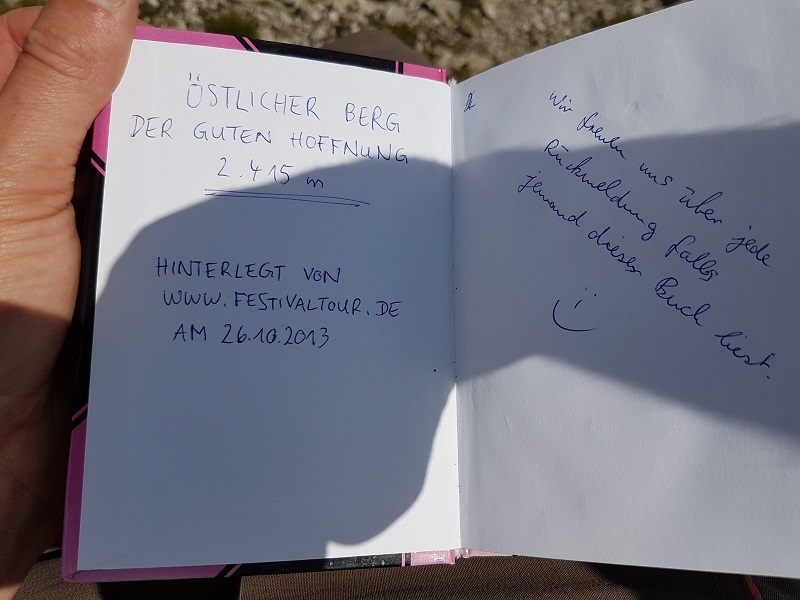 ÖSTLICHER BERG
DER GUTEN HOFFNUNG
2.415 m
HINTERLEGT VON
WWW.FESTIVALTOUR.DE
AM 26.10.2013
Wir freuen uns über jede
Rückmeldung falls
jemand dieses Buch liest.